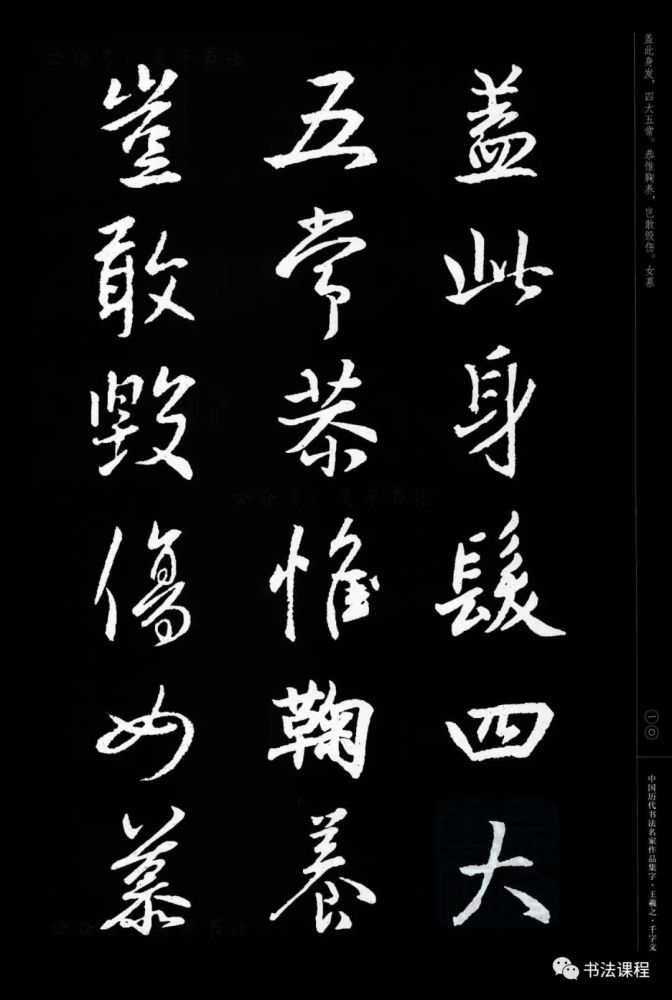 蓋此身髮四大
五常恭惟鞠養
豈敢毀傷女慕
盖此身发，四大五常。恭惟鞠养，岂敢毁伤。女慕
一〇
中国历代书法名家作品集字·王羲之·千字文
书法课程